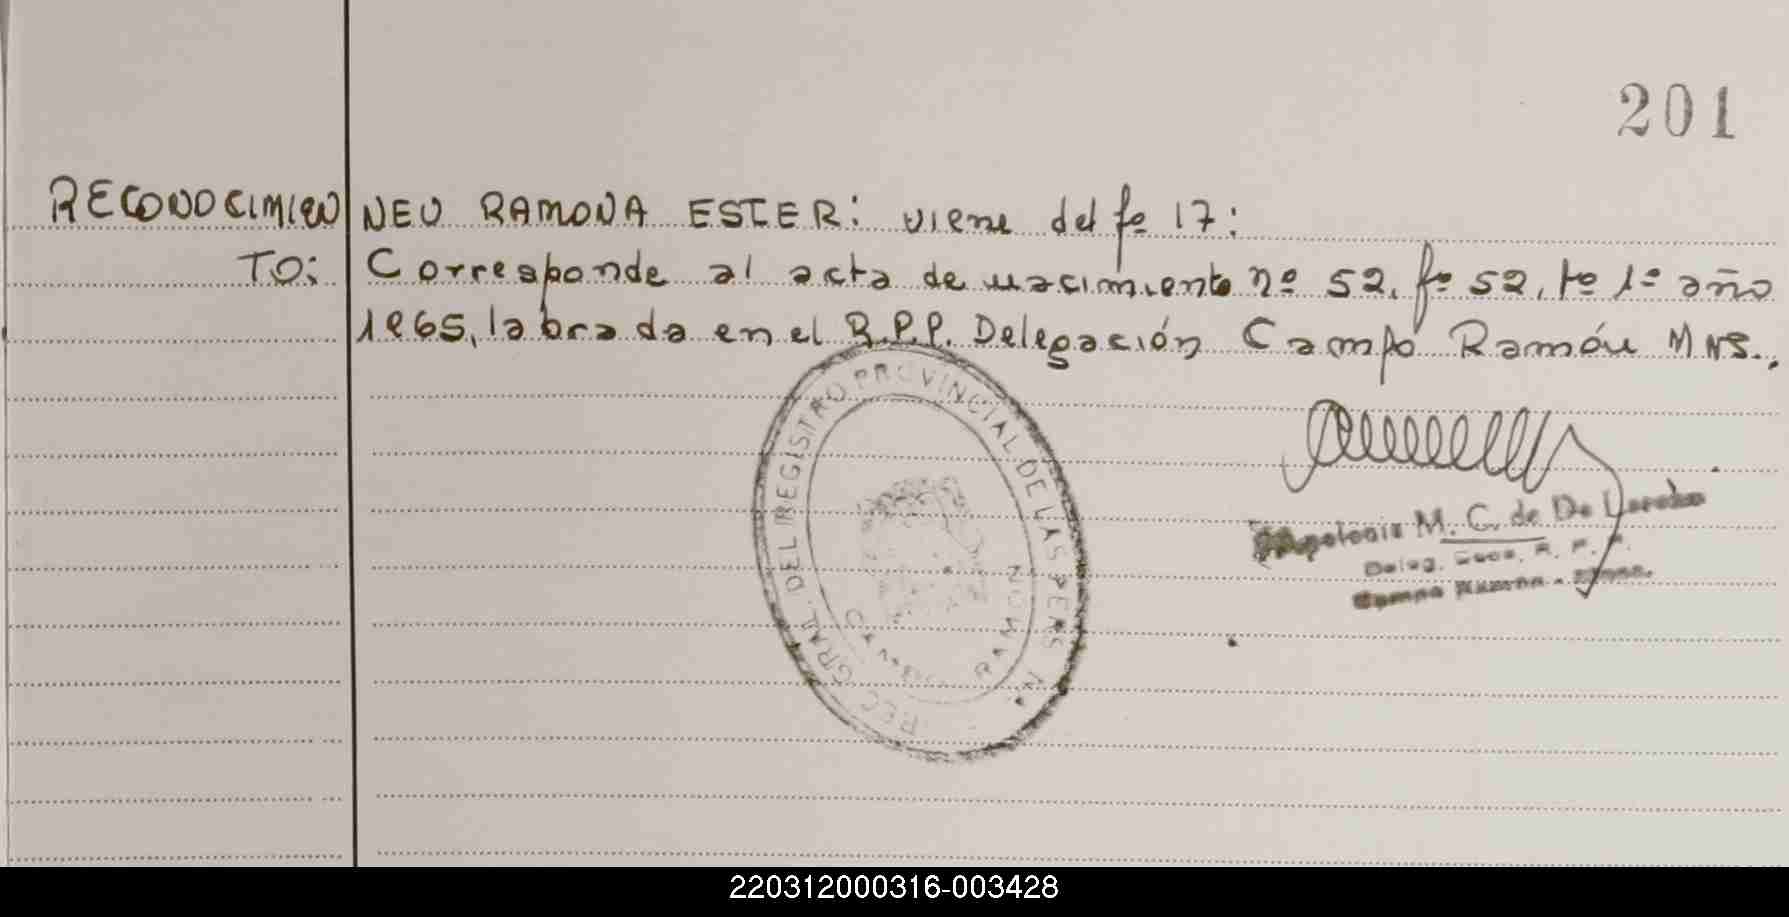 201
RECONOCIMIEN NEU RAMONA ESTER: viene del fº 17:
TO: Corresponde al acta de nacimiento nº 52, fº 52, tº 1º año
1965, labrada en el R.P.P. Delegación Campo Ramón MNS.
GRAL. DEL REGISTRO PROVINCIAL DE LAS PERS
RAMON
Apolonia M. C. de De
Deleg. R. P. P.
220312000316-003428